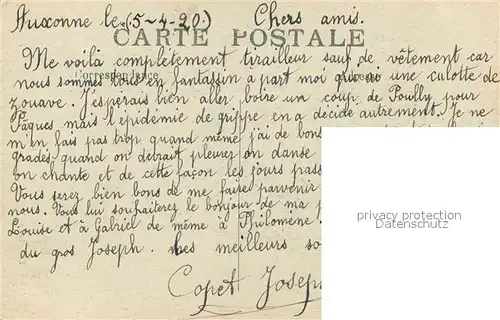 Auxonne le (5-4-20) Chers amis.
CARTE POSTALE
Me voilà complètement tirailleur sauf de vêtement car
Correspondance
nous sommes tous en fantassin a part moi qui ai une culotte de
zouave. J'esperais bien aller boire un coup de Pouilly pour
Pâques mais l'epidémie de grippe en a décidé autrement. Je ne
m'en fais pas trop quand même j'ai de bons
gradés, quand on debrait pleurer on danse
on chante et de cette façon les jours pass
Vous serez bien bons de me faire parvenir
nous. Vous lui souhaiterez le bonjour de ma p
Louise et à Gabriel de même à Philomène
du gros Joseph. Mes meilleurs so
Copet Joseph
privacy protection
Datenschutz